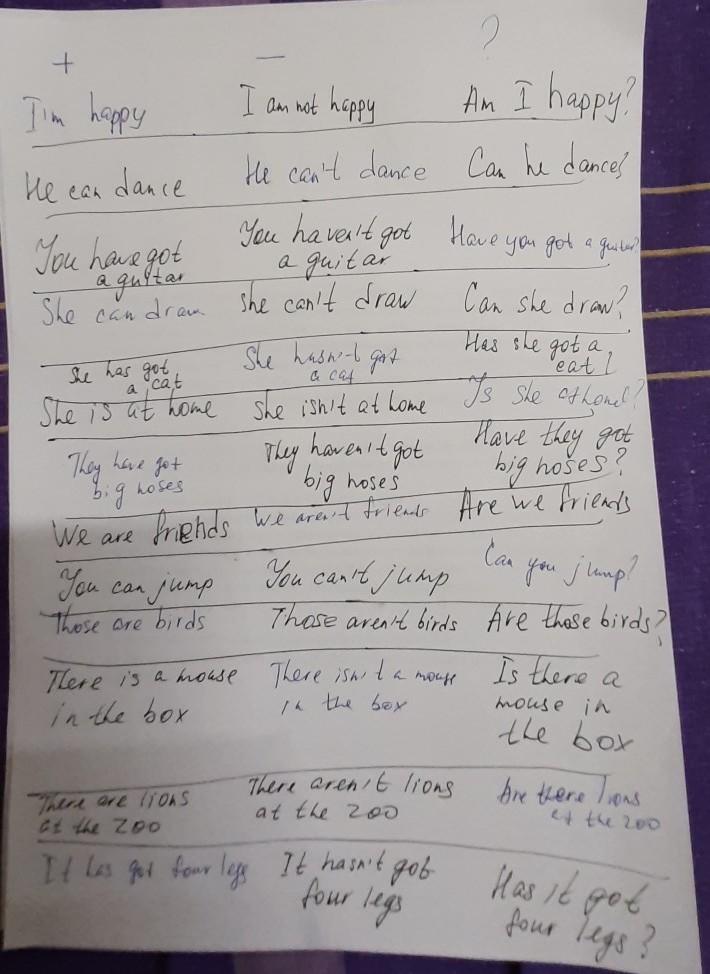 + − ?
I'm happy I am not happy Am I happy?
He can dance He can't dance Can he dance?
You have got You haven't got Have you got a guitar?
a guitar a guitar
She can draw She can't draw Can she draw?
She has got She hasn't got Has she got a
a cat a cat cat ?
She is at home She isn't at home Is she at home?
They have got They haven't got Have they got
big noses big noses big noses?
We are friends We aren't friends Are we friends
You can jump You can't jump Can you jump?
Those are birds Those aren't birds Are those birds?
There is a mouse There isn't a mouse Is there a
in the box in the box mouse in
the box
There are lions There aren't lions Are there lions
at the zoo at the zoo at the zoo
It has got four legs It hasn't got Has it got
four legs four legs?